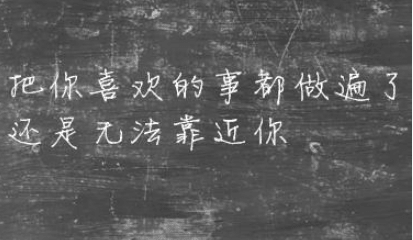 把你喜欢的事都做遍了
还是无法靠近你